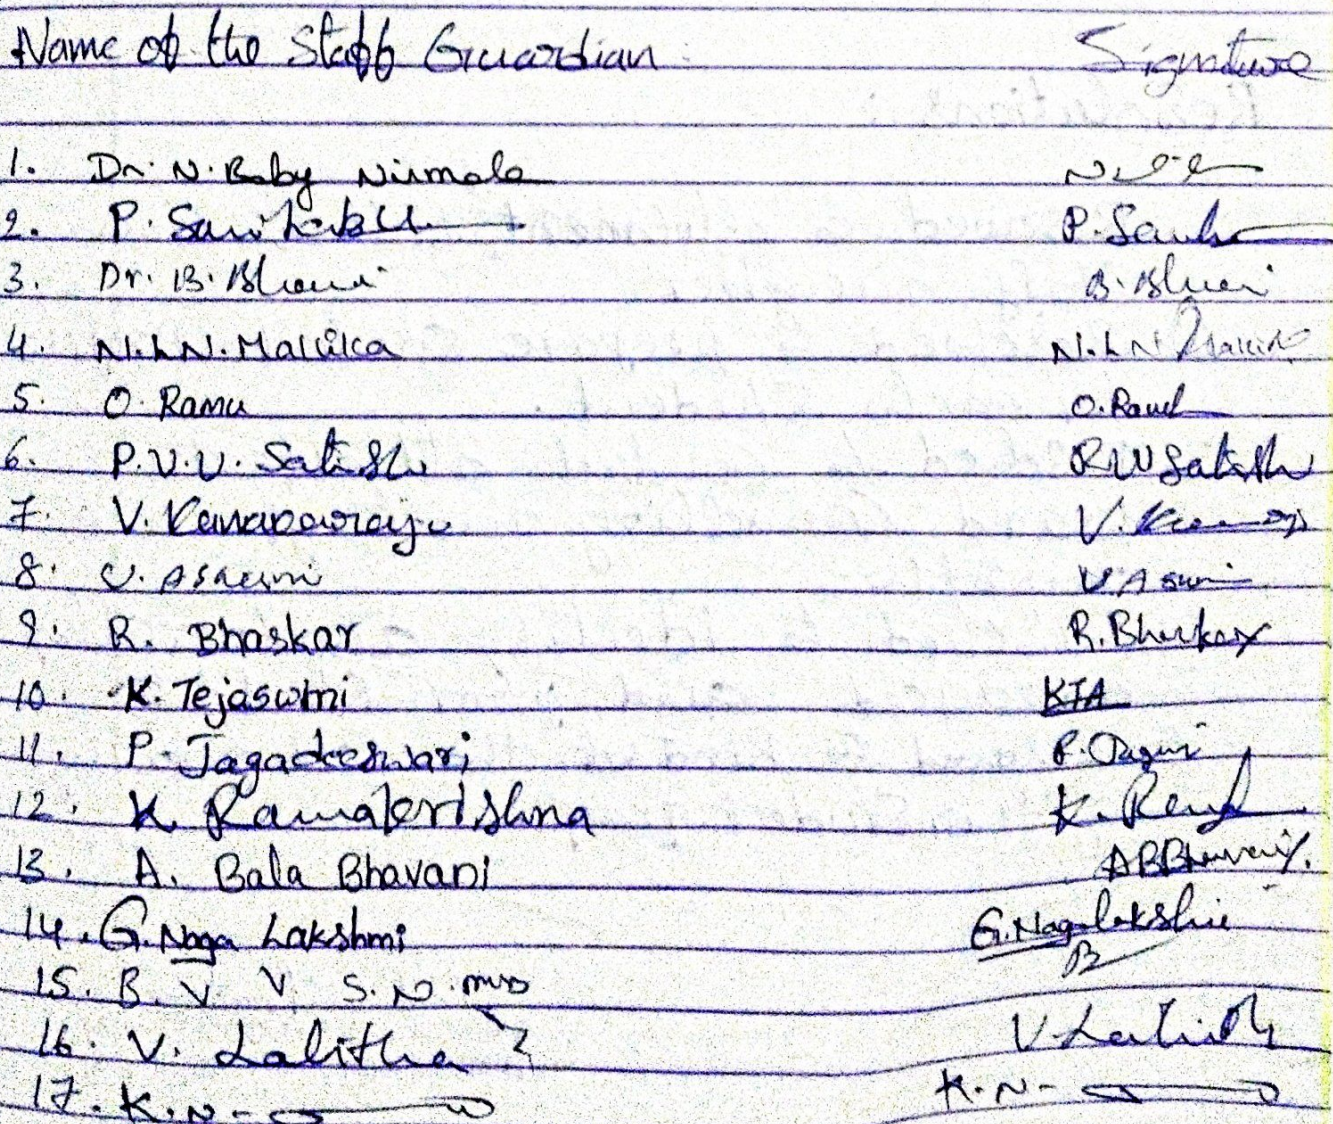 Name of the Staff Guardian Signature
1. Dr. N. Baby Nirmala
2. P. P. San
3. Dr. B. Bhavani B. Bhavani
4. N.L.N. Mallika N.L.N Mallika
5. O. Ramu O. Ramu
6. P.V.V. Satish P.V.V Satish
7. V. Kanakaraju V.
8. V. Aswini V. Aswini
9. R. Bhaskar R. Bhaskar
10. K. Tejaswini KTA
11. P. Jagadeeswari P.
12. K. Ramakrishna K.
13. A. Bala Bhavani A B Bhavani
14. G. Naga Lakshmi G. Naga lakshmi
15. B. V. V. S. N.
16. V. Lalitha V Lalitha
17. K. N. K. N.